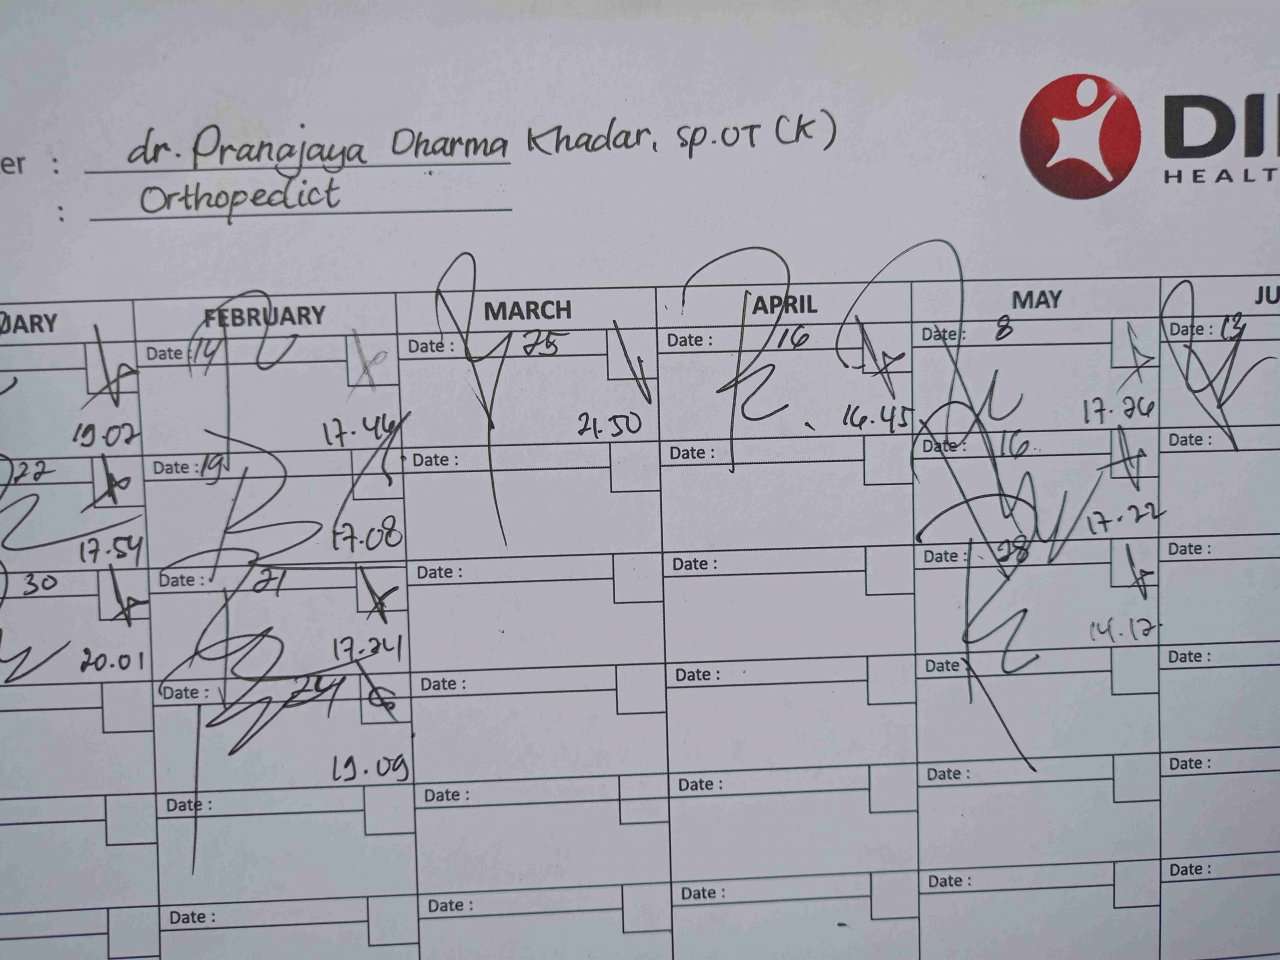 er : dr. Pranajaya Dharma Khadar, sp.OT (K)
: Orthopedict
DI
HEALT
FEBRUARY MARCH APRIL MAY JU
Date : 14 Date : 25 Date : 16 Date : 8 Date : 13
19.02 17.46 21.50 16.45 17.26
22 Date : 19 Date : Date : Date : 16 Date :
17.54 17.08 17.22
30 Date : 21 Date : Date : Date : 28 Date :
20.01 17.24 14.12
Date : 24 Date : Date : Date Date :
19.09
Date : Date : Date : Date : Date :
Date : Date : Date : Date : Date :